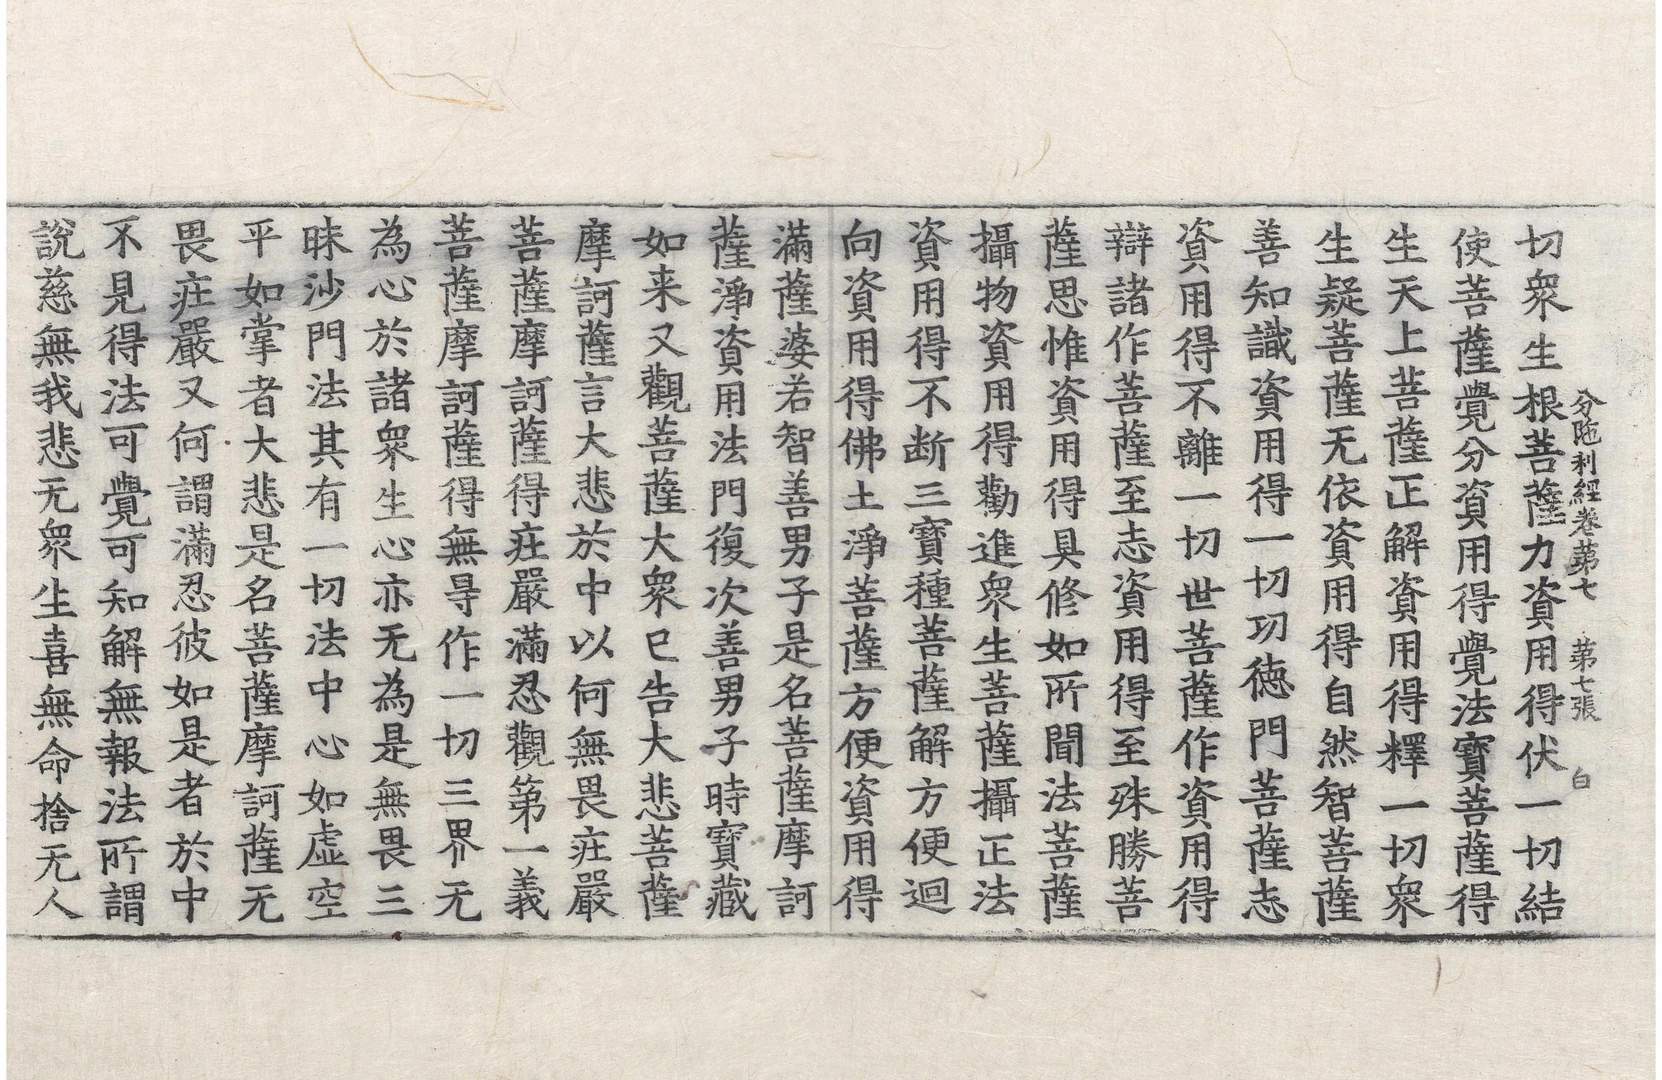 分陁利経卷第七　第七張　白
切衆生根菩薩力資用得伏一切結
使菩薩覺分資用得覺法寶菩薩得
生天上菩薩正解資用得釋一切衆
生疑菩薩无依資用得自然智菩薩
善知識資用得一切功德門菩薩志
資用得不離一切世菩薩作資用得
辯諸作菩薩至志資用得至殊勝菩
薩思惟資用得具修如所聞法菩薩
攝物資用得勸進衆生菩薩攝正法
資用得不断三寶種菩薩解方便迴
向資用得佛土淨菩薩方便資用得
滿薩婆若智善男子是名菩薩摩訶
薩淨資用法門復次善男子時寶藏
如来又觀菩薩大衆已告大悲菩薩
摩訶薩言大悲於中以何無畏疘嚴
菩薩摩訶薩得疘嚴滿忍觀第一義
菩薩摩訶薩得無㝵作一切三界无
為心於諸衆生心亦无為是無畏三
昧沙門法其有一切法中心如虛空
平如掌者大悲是名菩薩摩訶薩无
畏疘嚴又何謂滿忍彼如是者於中
不見得法可覺可知解無報法所謂
說慈無我悲无衆生喜無命捨无人